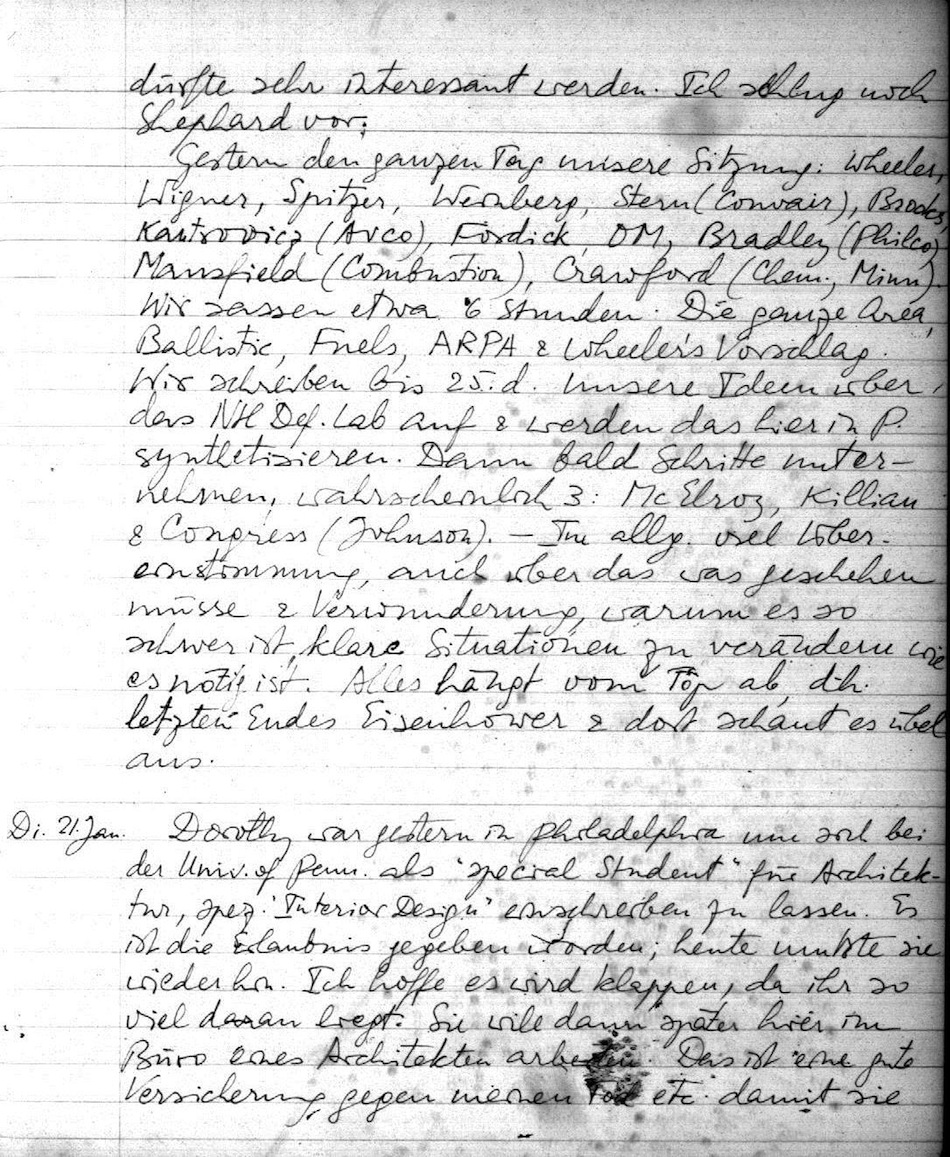 dürfte sehr interessant werden. Ich schlug noch
Shephard vor.
Gestern den ganzen Tag unsere Sitzung: Wheeler,
Wigner, Spitzer, Weinberg, Stern (Convair), Brooks,
Kantrowicz (Avco), Fosdick, OM, Bradley (Philco),
Mansfield (Combustion), Crawford (Chem., Minn).
Wir sassen etwa 6 Stunden. Die ganze Area,
Ballistic, Fuels, ARPA & Wheelers Vorschlag.
Wir schreiben bis 25. d. unsere Ideen über
das Ntl Def. Lab auf & werden das hier in P.
synthetisieren. Dann bald Schritte unter-
nehmen, wahrscheinlich 3: McElroy, Killian
& Congress (Johnson). – Im allg. viel Über-
einstimmung, auch über das was geschehen
müsse & Verwunderung, warum es so
schwer ist, klare Situationen zu verändern wie
es nötig ist. Alles hängt vom Top ab, d.h.
letzten Endes Eisenhower & dort schaut es übel
aus.
Di. 21. Jan. Dorothy war gestern in Philadelphia um sich bei
der Univ. of Penn. als "special Student" für Architek-
tur, spez. "Interior Design" einschreiben zu lassen. Es
ist die Erlaubnis gegeben worden; heute musste sie
wieder hin. Ich hoffe es wird klappen, da ihr so
viel daran liegt. Sie will dann später hier im
Büro eines Architekten arbeiten. Das ist eine gute
Versicherung gegen meinen Tod etc. damit sie